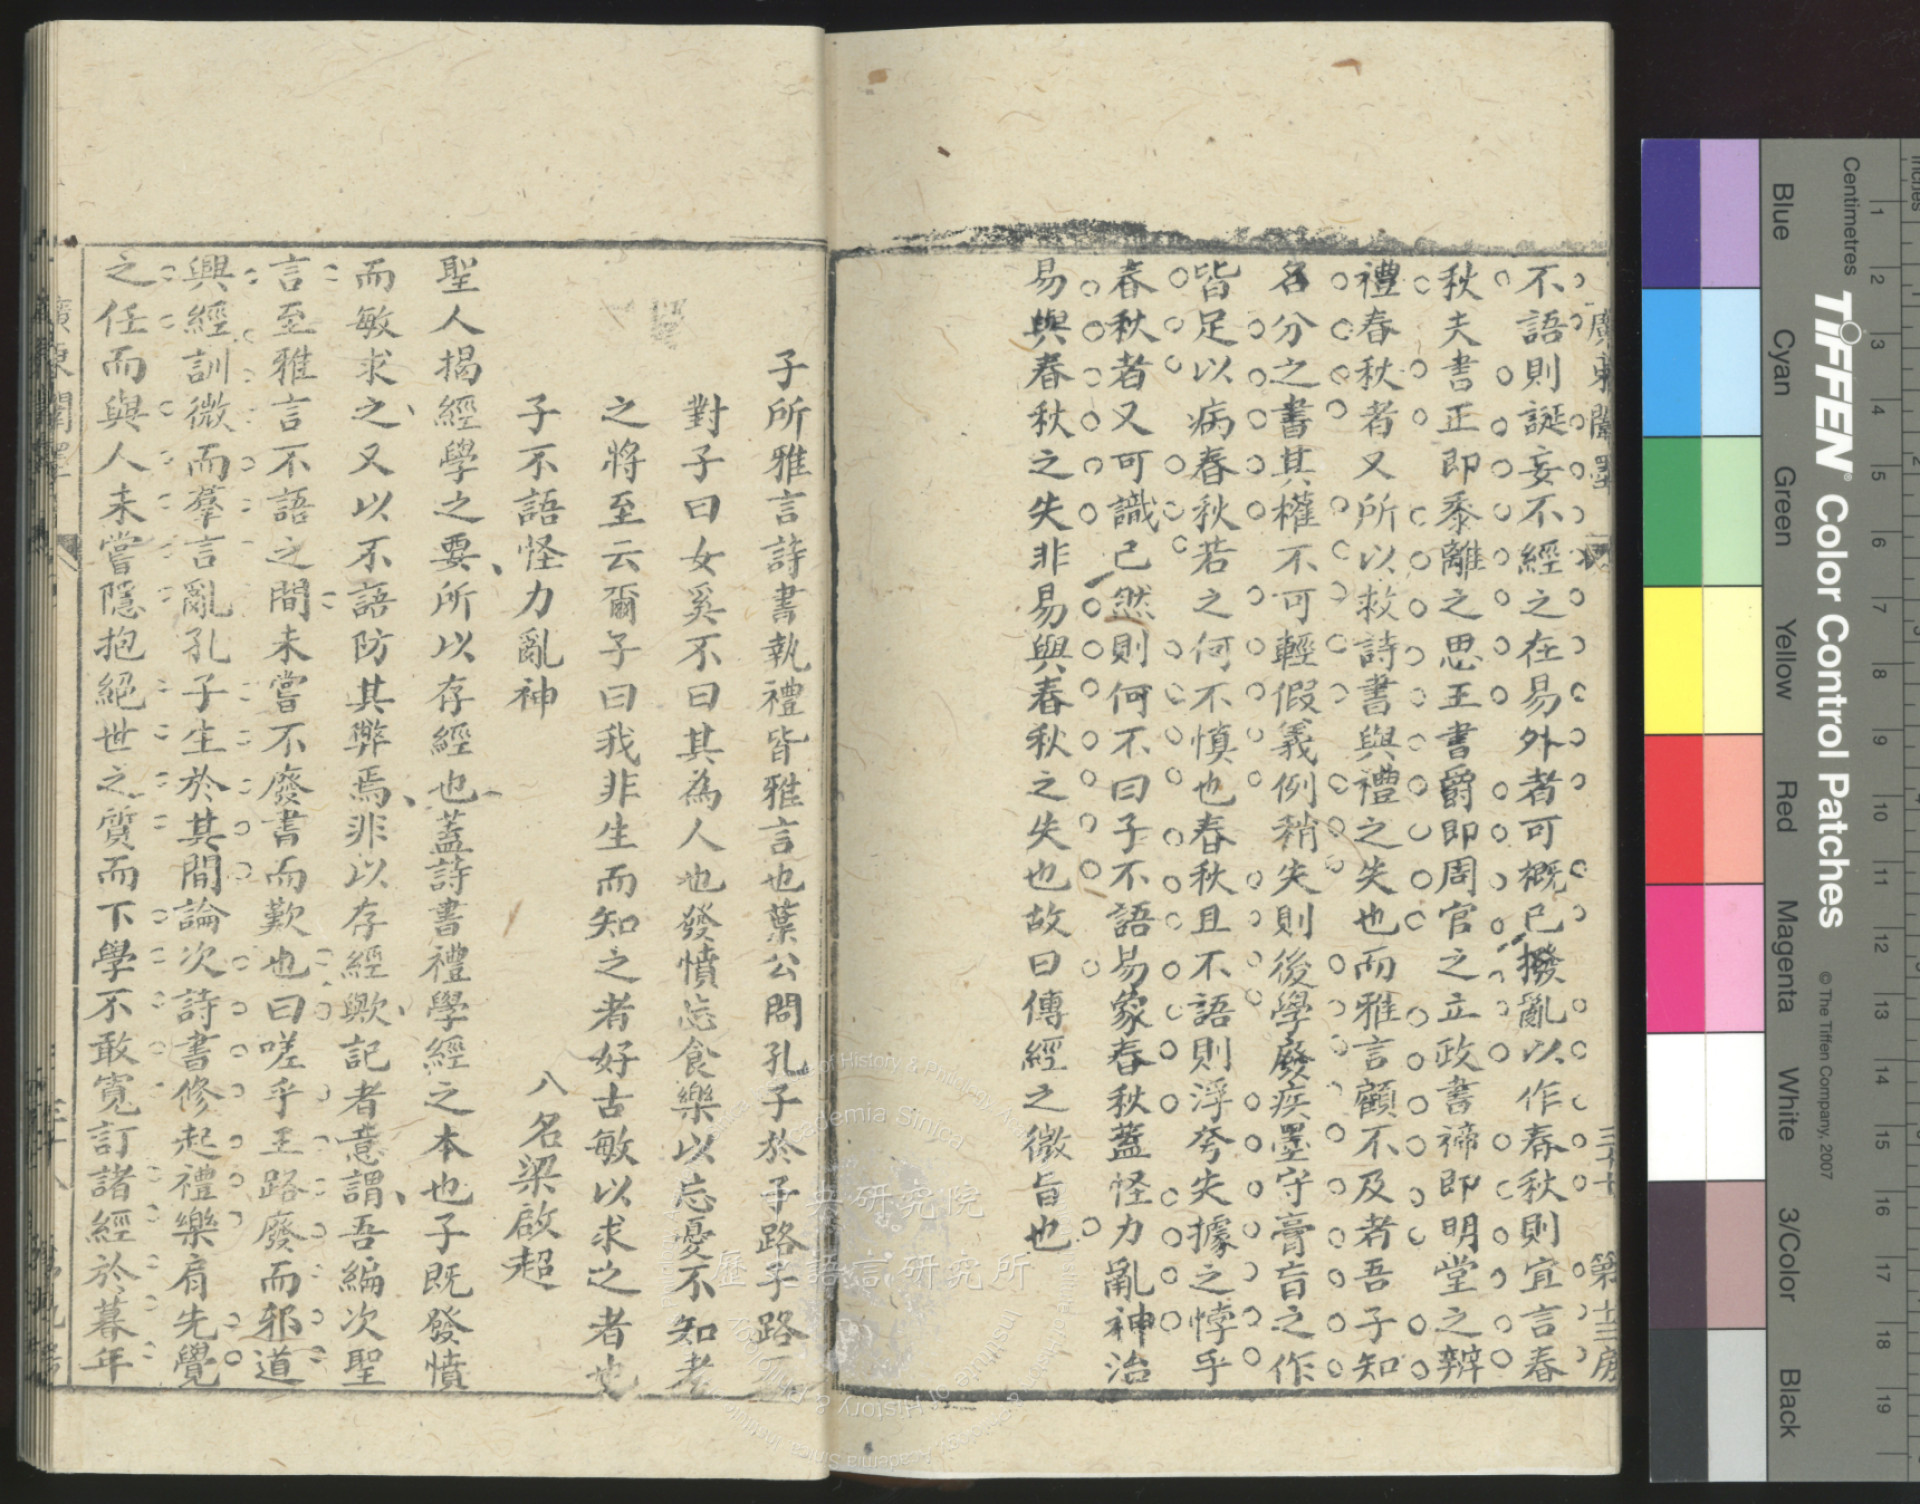 不語則誕妄不經之在易外者可概已撥亂以作春秋則宜言春
秋夫書正即黍離之思王書爵即周官之立政書禘即明堂之辨
禮春秋者又所以救詩書與禮之失也而雅言顧不及者吾子知
名分之書其權不可輕假義例稍失則後學廢疾墨守膏肓之作
皆足以病春秋若之何不慎也春秋且不語則浮夸失據之悖乎
春秋者又可識已然則何不曰子不語易象春秋蓋怪力亂神治
易與春秋之失非易與春秋之失也故曰傳經之微旨也
子所雅言詩書執禮皆雅言也葉公問孔子於子路子路不
對子曰女奚不曰其為人也發憤忘食樂以忘憂不知老
之將至云爾子曰我非生而知之者好古敏以求之者也
子不語怪力亂神
八名梁啟超
聖人揭經學之要所以存經也蓋詩書禮學經之本也子既發憤
而敏求之又以不語防其弊焉非以存經歟記者意謂吾編次聖
言至雅言不語之間未嘗不廢書而歎也曰嗟乎王路廢而邪道
興經訓微而羣言亂孔子生於其間論次詩書修起禮樂肩先覺
之任而與人未嘗隱抱絕世之質而下學不敢寬訂諸經於暮年
廣東闈墨
第十三房
TIFFEN® Color Control Patches
© The Tiffen Company, 2007
Centimetres
Inches
1 2 3 4 5 6 7 8 9 10 11 12 13 14 15 16 17 18 19
Blue
Cyan
Green
Yellow
Red
Magenta
White
3/Color
Black